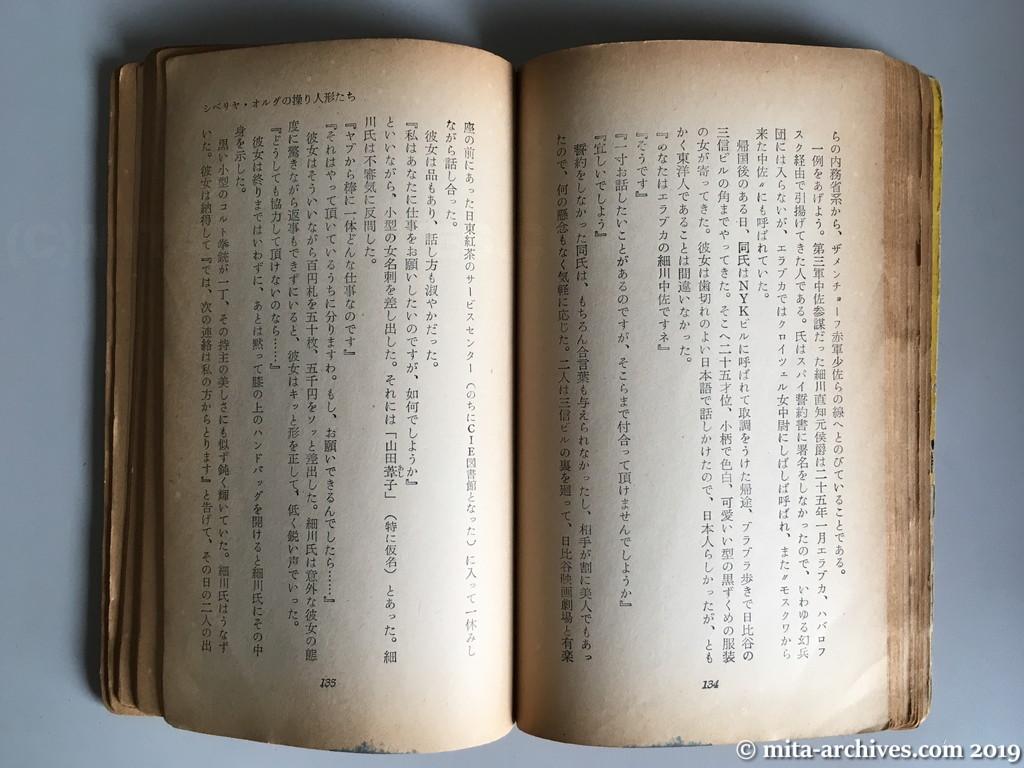 らの内務省系から、ザメンチョーフ赤軍少佐らの線へとのびていることである。
一例をあげよう。第三軍中佐参謀だった細川直知元侯爵は二十五年一月エラブカ、ハバロフ
スク経由で引揚げてきた人である。氏はスパイ誓約書に署名をしなかったので、いわゆる幻兵
団には入らないが、エラブカではクロイツェル女中尉にしばしば呼ばれ、また〃モスクワから
来た中佐〃にも呼ばれていた。
帰国後のある日、同氏はNYKビルに呼ばれて取調をうけた帰途、ブラブラ歩きで日比谷の
三信ビルの角までやってきた。そこへ二十五才位、小柄で色白、可愛いい型の黒ずくめの服装
の女が寄ってきた。彼女は歯切れのよい日本語で話しかけたので、日本人らしかったが、とも
かく東洋人であることは間違いなかった。
『あなたはエラブカの細川中佐ですネ』
『そうです』
『一寸お話したいことがあるのですが、そこらまで付合って頂けませんでしようか』
『宜しいでしよう』
誓約をしなかった同氏は、もちろん合言葉も与えられなかったし、相手が割に美人でもあっ
たので、何の懸念もなく気軽に応じた。二人は三信ビルの裏を廻って、日比谷映画劇場と有楽
134
シベリヤ・オルグの操り人形たち
座の前にあった日東紅茶のサービスセンター(のちにCIE図書館となった)に入って一休みし
ながら話し合った。
彼女は品もあり、話し方も淑やかだった。
『私はあなたに仕事をお願いしたいのですが、如何でしようか』
といいながら、小型の女名刺を差し出した。それには「山田葊子」(特に仮名)とあった。細
川氏は不審気に反問した。
『ヤブから棒に一体どんな仕事なのです』
『それはやって頂いているうちに分りますわ。もし、お願いできるんでしたら……』
彼女はそういいながら百円札を五十枚、五千円をソッと差出した。細川氏は意外な彼女の態
度に驚きながら返事もできずにいると、彼女はキッと形を正して、低く鋭い声でいった。
『どうしても協力して頂けないのなら……』
彼女は終りまではいわずに、あとは黙って膝の上のハンドバッグを開けると細川氏にその中
身を示した。
黒い小型のコルト拳銃が一丁、その持主の美しさにも似ず鈍く輝いていた。細川氏はうなず
いた。彼女は納得して『では、次の連絡は私の方からとります』と告げて、その日の二人の出
135
© mita-archives.com 2019